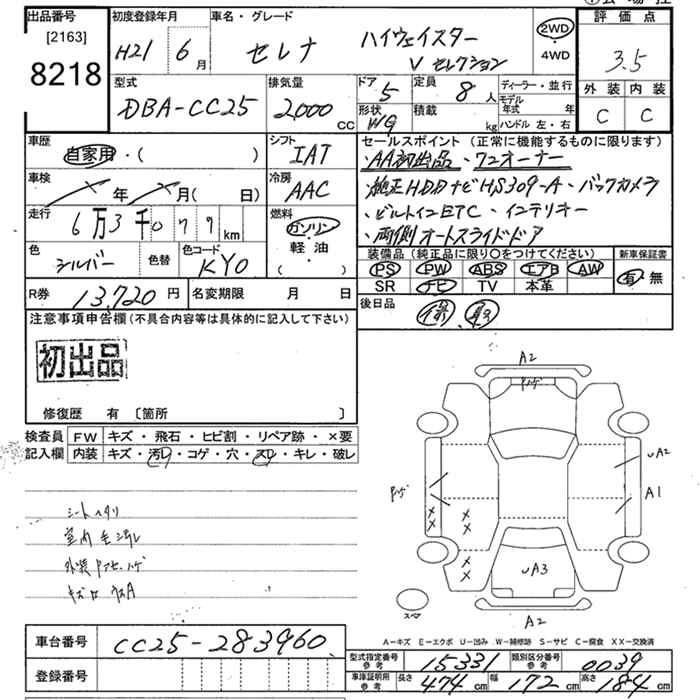 出品番号
[2163]
8218
初度登録年月
H21 6月
車名・グレード
セレナ ハイウェイスター
V セレクション
2WD
・
4WD
評価点
3.5
外装 内装
C C
型式
DBA-CC25
排気量
2,000 CC
ドア 5
定員 8人
形状 WG
積載 kg
ディーラー・並行
モデル年式 年
ハンドル 左・右
車歴
自家用・( )
シフト
IAT
車検
年 月( 日)
冷房
AAC
走行
6万3千077km
燃料
ガソリン
軽・油
( )
色 シルバー
色替
色コード KY0
R券 13,720円
名変期限 月 日
セールスポイント(正常に機能するものに限ります)
・AA初出品・ワンオーナー
・純正HDDナビHS309-A・バックカメラ
・ビルトインETC・インテリキー
・両側オートスライドドア
装備品(純正品に限り○をつけてください)
PS PW ABS エアB AW
SR ナビ TV 本革
新車保証書
有・無
後日品
保 取
注意事項申告欄(不具合内容等は具体的に記入して下さい)
初出品
修復歴 有 〔箇所 〕
検査員 FW キズ・飛石・ヒビ割・リペア跡・×要
記入欄 内装 キズ・汚レ・コゲ・穴・スレ・キレ・破レ
シートヘタリ
室内毛汚レ
A2
UA2
A1
UA3
A2
スペア
A-キズ E-エクボ U-凹み W-補修跡 S-サビ C-腐食 XX-交換済
車台番号 CC25-283960
登録番号
型式指定番号 参考 15331
類別区分番号 参考 0039
車庫証明用 参考 長さ 474cm 幅 172cm 高さ 184cm